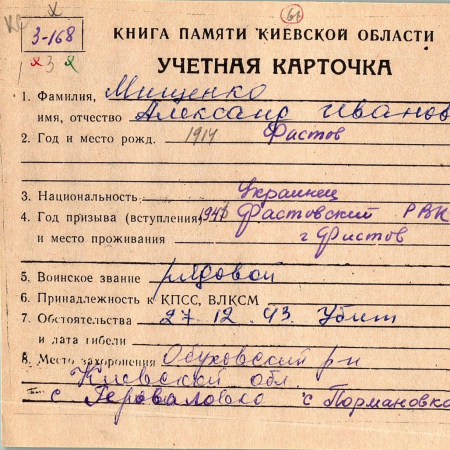 61
3-168
х 3 х
КНИГА ПАМЯТИ КИЕВСКОЙ ОБЛАСТИ
УЧЕТНАЯ КАРТОЧКА
1. Фамилия, Мищенко
имя, отчество Александр Иванов
2. Год и место рожд. 1914 Фастов
3. Национальность Украинец
4. Год призыва (вступления) Фастовский РВК
и место проживания г Фастов
5. Воинское звание рядовой
6. Принадлежность к КПСС, ВЛКСМ
7. Обстоятельства 27.12.43. Убит
и дата гибели
8. Место захоронения Обуховский р-н
Киевская обл.
с